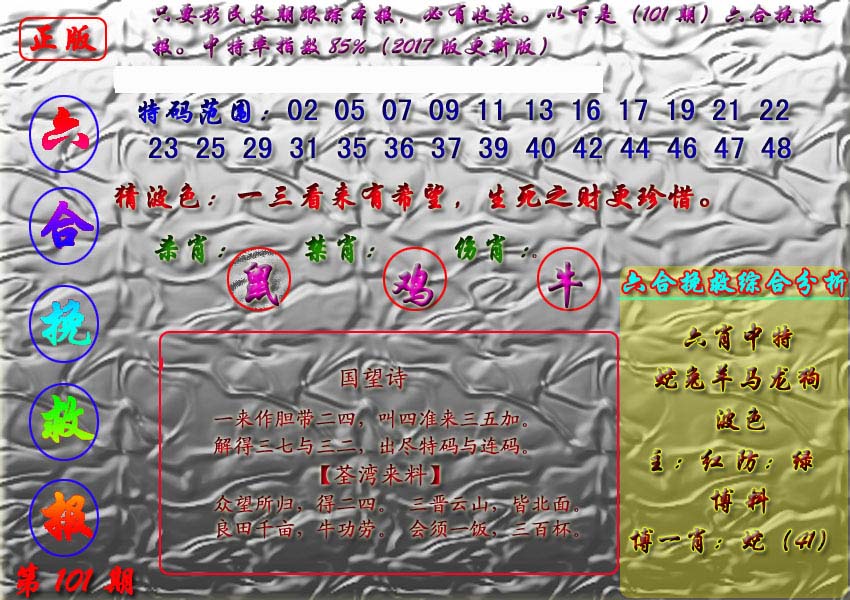 正版
只要彩民长期跟踪本报，必有收获。以下是（101期）六合挽救
报。中特率指数85%（2017版更新版）
六
合
挽
救
报
第101期
特码范围：02 05 07 09 11 13 16 17 19 21 22
23 25 29 31 35 36 37 39 40 42 44 46 47 48
猜波色：一三看来有希望，生死之财更珍惜。
杀肖：鼠 禁肖：鸡 伤肖：牛
国望诗
一来作胆带二四，叫四准来三五加。
解得三七与三二，出尽特码与连码。
【荃湾来料】
众望所归，得二四。 三晋云山，皆北面。
良田千亩，牛功劳。 会须一饭，三百杯。
六合挽救综合分析
六肖中特
蛇兔羊马龙狗
波色
主：红防：绿
博料
博一肖：蛇（41）